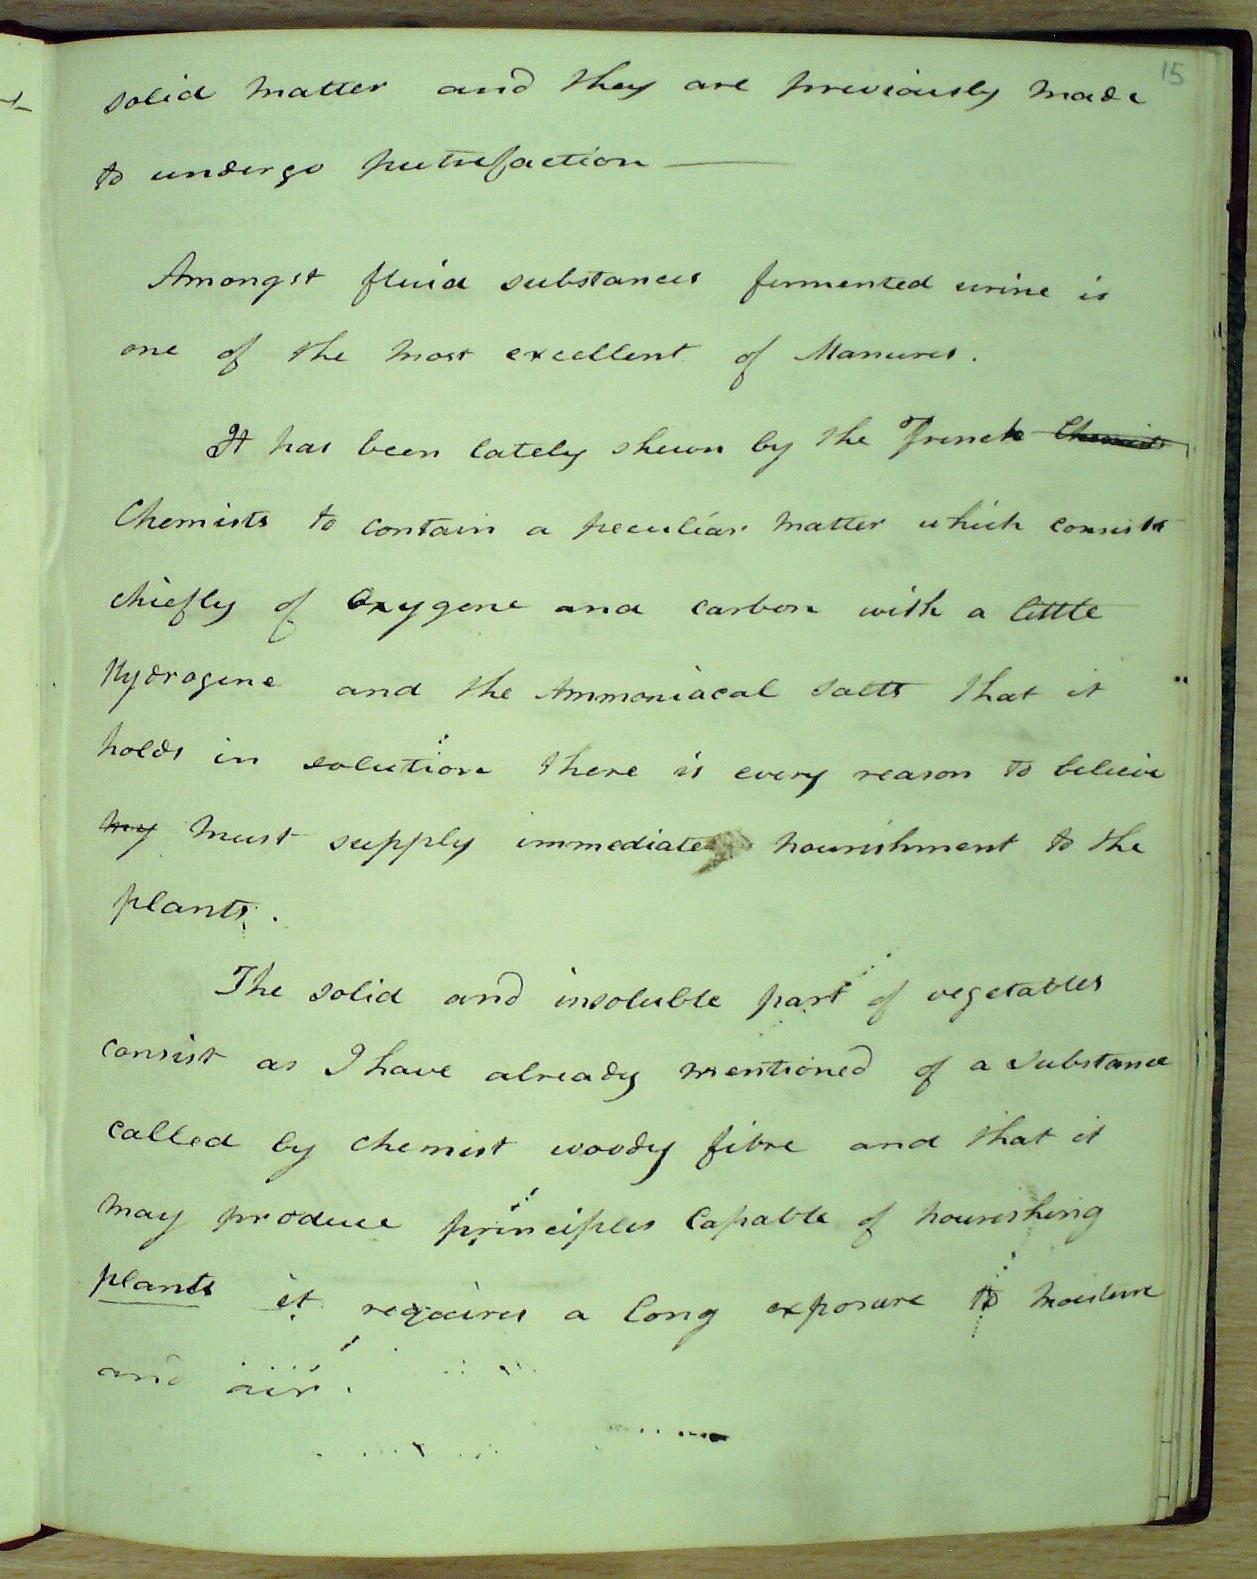 15
solid matter and they are previously made
to undergo putrefaction —
Amongst fluid substances fermented urine is
one of the most excellent of Manures.
It has been lately shewn by the French Chemists
Chemists to contain a peculiar matter which consists
chiefly of Oxygene and carbon with a little
Hydrogene and the Ammoniacal salts that it
holds in solution there is every reason to believe
my must supply immediate nourishment to the
plants.
The solid and insoluble part of vegetables
consist as I have already mentioned of a substance
called by chemist woody fibre and that it
may produce principles capable of nourishing
plants it requires a long exposure to moisture
and air.